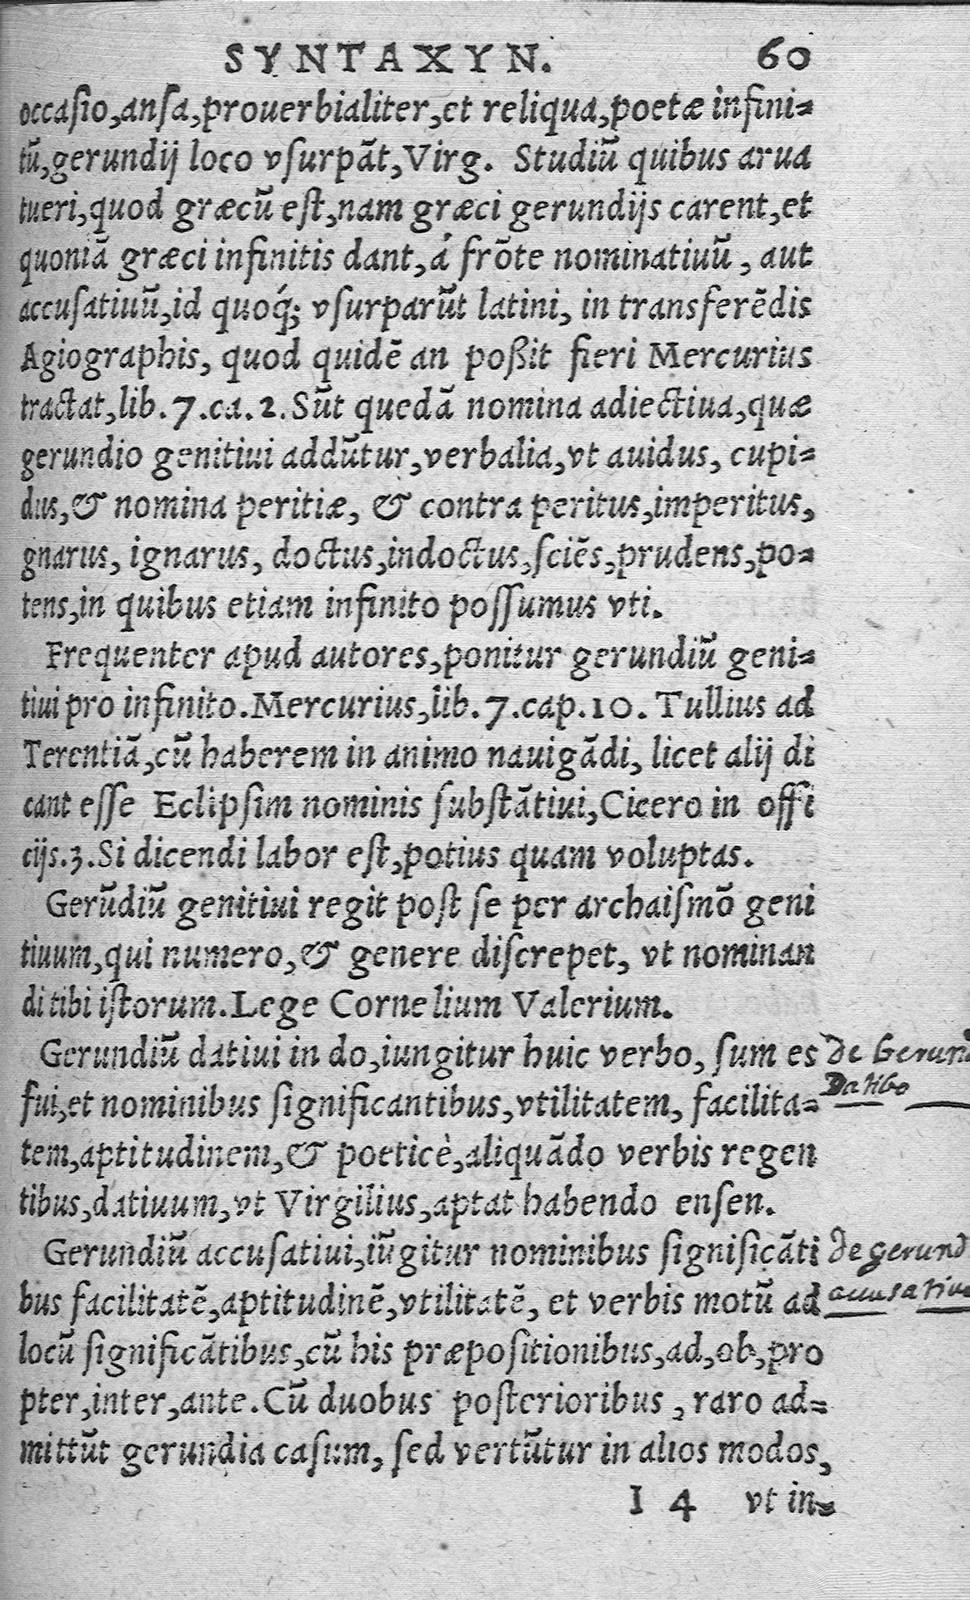 SYNTAXYN. 60
occasio,ansa,prouerbialiter,et reliqua,poetæ infini=
tũ,gerundij loco vsurpãt,Virg. Studiũ quibus arua
tueri,quod græcũ est,nam græci gerundijs carent,et
quoniã græci infinitis dant,á frõte nominatiuũ, aut
accusatiuũ,id quoq́; vsurparũt latini, in transferẽdis
Agiographis, quod quidẽ an poßit fieri Mercurius
tractat,lib.7.ca.2.Sũt quedã nomina adiectiua,quæ
gerundio genitiui addũtur,verbalia,vt auidus, cupi=
dus,& nomina peritiæ, & contra peritus,imperitus,
gnarus, ignarus, doctus,indoctus,sciẽs,prudens,po=
tens,in quibus etiam infinito possumus vti.
Frequenter apud autores,ponitur gerundiũ geni=
tiui pro infinito.Mercurius,lib.7.cap.10. Tullius ad
Terentiã,cũ haberem in animo nauigãdi, licet alij di
cant esse Eclipsim nominis substãtiui,Cicero in offi
cijs.3.Si dicendi labor est,potius quam voluptas.
Gerũdiũ genitiui regit post se per archaismõ geni
tiuum,qui numero,& genere discrepet, vt nominan
di tibi istorum.Lege Cornelium Valerium.
Gerundiũ datiui in do,iungitur huic verbo, sum es de Gerund
fui,et nominibus significantibus,vtilitatem, facilita= Datibo
tem,aptitudinem,& poeticè,aliquãdo verbis regen
tibus,datiuum,vt Virgilius,aptat habendo ensen.
Gerundiũ accusatiui,iũgitur nominibus significãti de gerund
bus facilitatẽ,aptitudinẽ,vtilitatẽ, et verbis motũ ad accusatiuo
locũ significãtibus,cũ his præpositionibus,ad,ob,pro
pter,inter,ante.Cũ duobus posterioribus , raro ad=
mittũt gerundia casum, sed vertũtur in alios modos,
I 4 vt in=